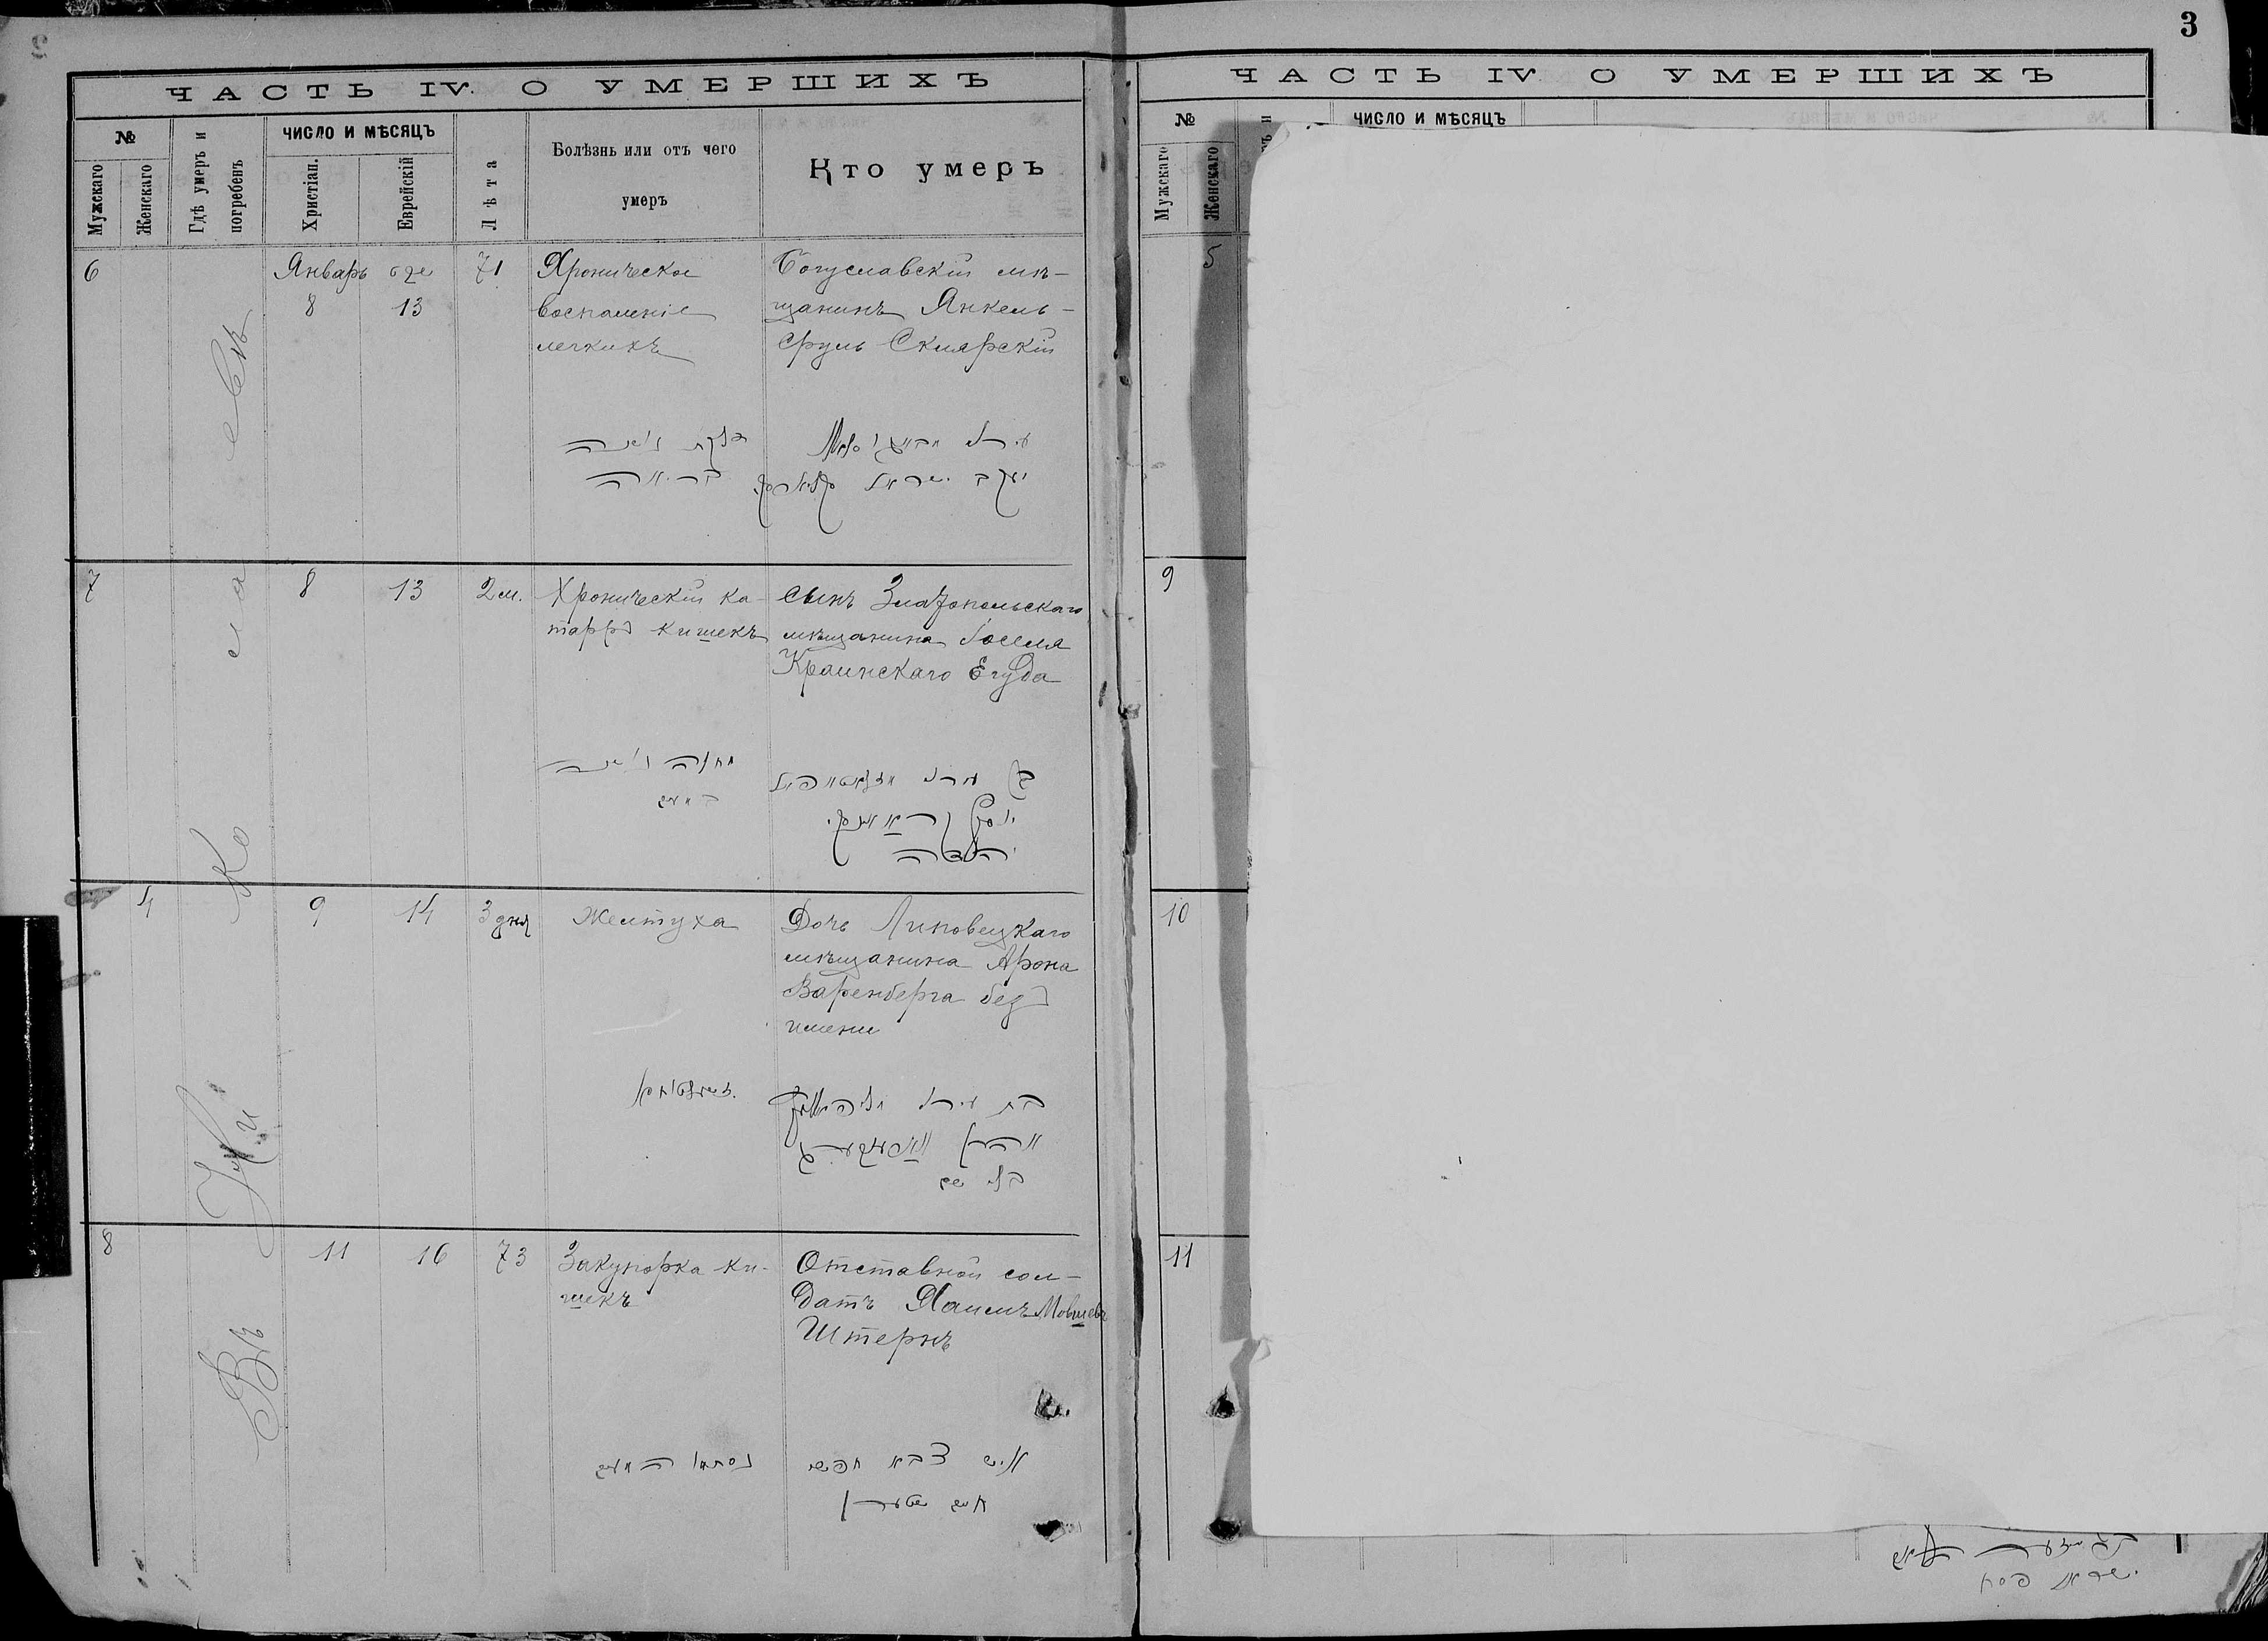 3
ЧАСТЬ IV. О УМЕРШИХЪ
№
Мужскаго
Женскаго
Гдѣ умеръ и погребенъ
ЧИСЛО И МѢСЯЦЪ
Христіан.
Еврейскій
Лѣта
Болѣзнь или отъ чего
умеръ
Кто умеръ
Въ Николаевѣ
6
Январь
8
13
71
Хроническое
воспаленіе
легкихъ
Богуславскій мѣ-
щанинъ Янкель-
Сруль Склярскій
יעקב ישראל
7
8
13
2 м.
Хроническій ка-
тарръ кишекъ
Сынъ Златопольскаго
мѣщанина Іоселя
Краинскаго Егуда
יוסף קראינסקי
יהודה
4
9
14
3 дня
Желтуха
Дочь Липовецкаго
мѣщанина Арона
Варенберга безъ
имени
בת
אהרן
בלי שם
8
11
16
73
Закупорка ки-
шекъ
Отставной сол-
датъ Хаимъ Мовшевъ
Штернъ
איש צבא חפשי
חיים שטערן
ЧАСТЬ IV. О УМЕРШИХЪ
№
Мужскаго
Женскаго
ЧИСЛО И МѢСЯЦЪ
5
9
10
11